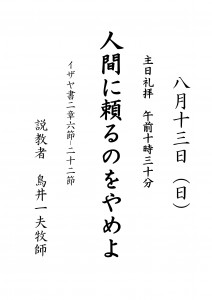 八月十三日（日）
主日礼拝　午前十時三十分
人間に頼るのをやめよ
イザヤ書二章六節－二十二節
説教者　鳥井一夫牧師